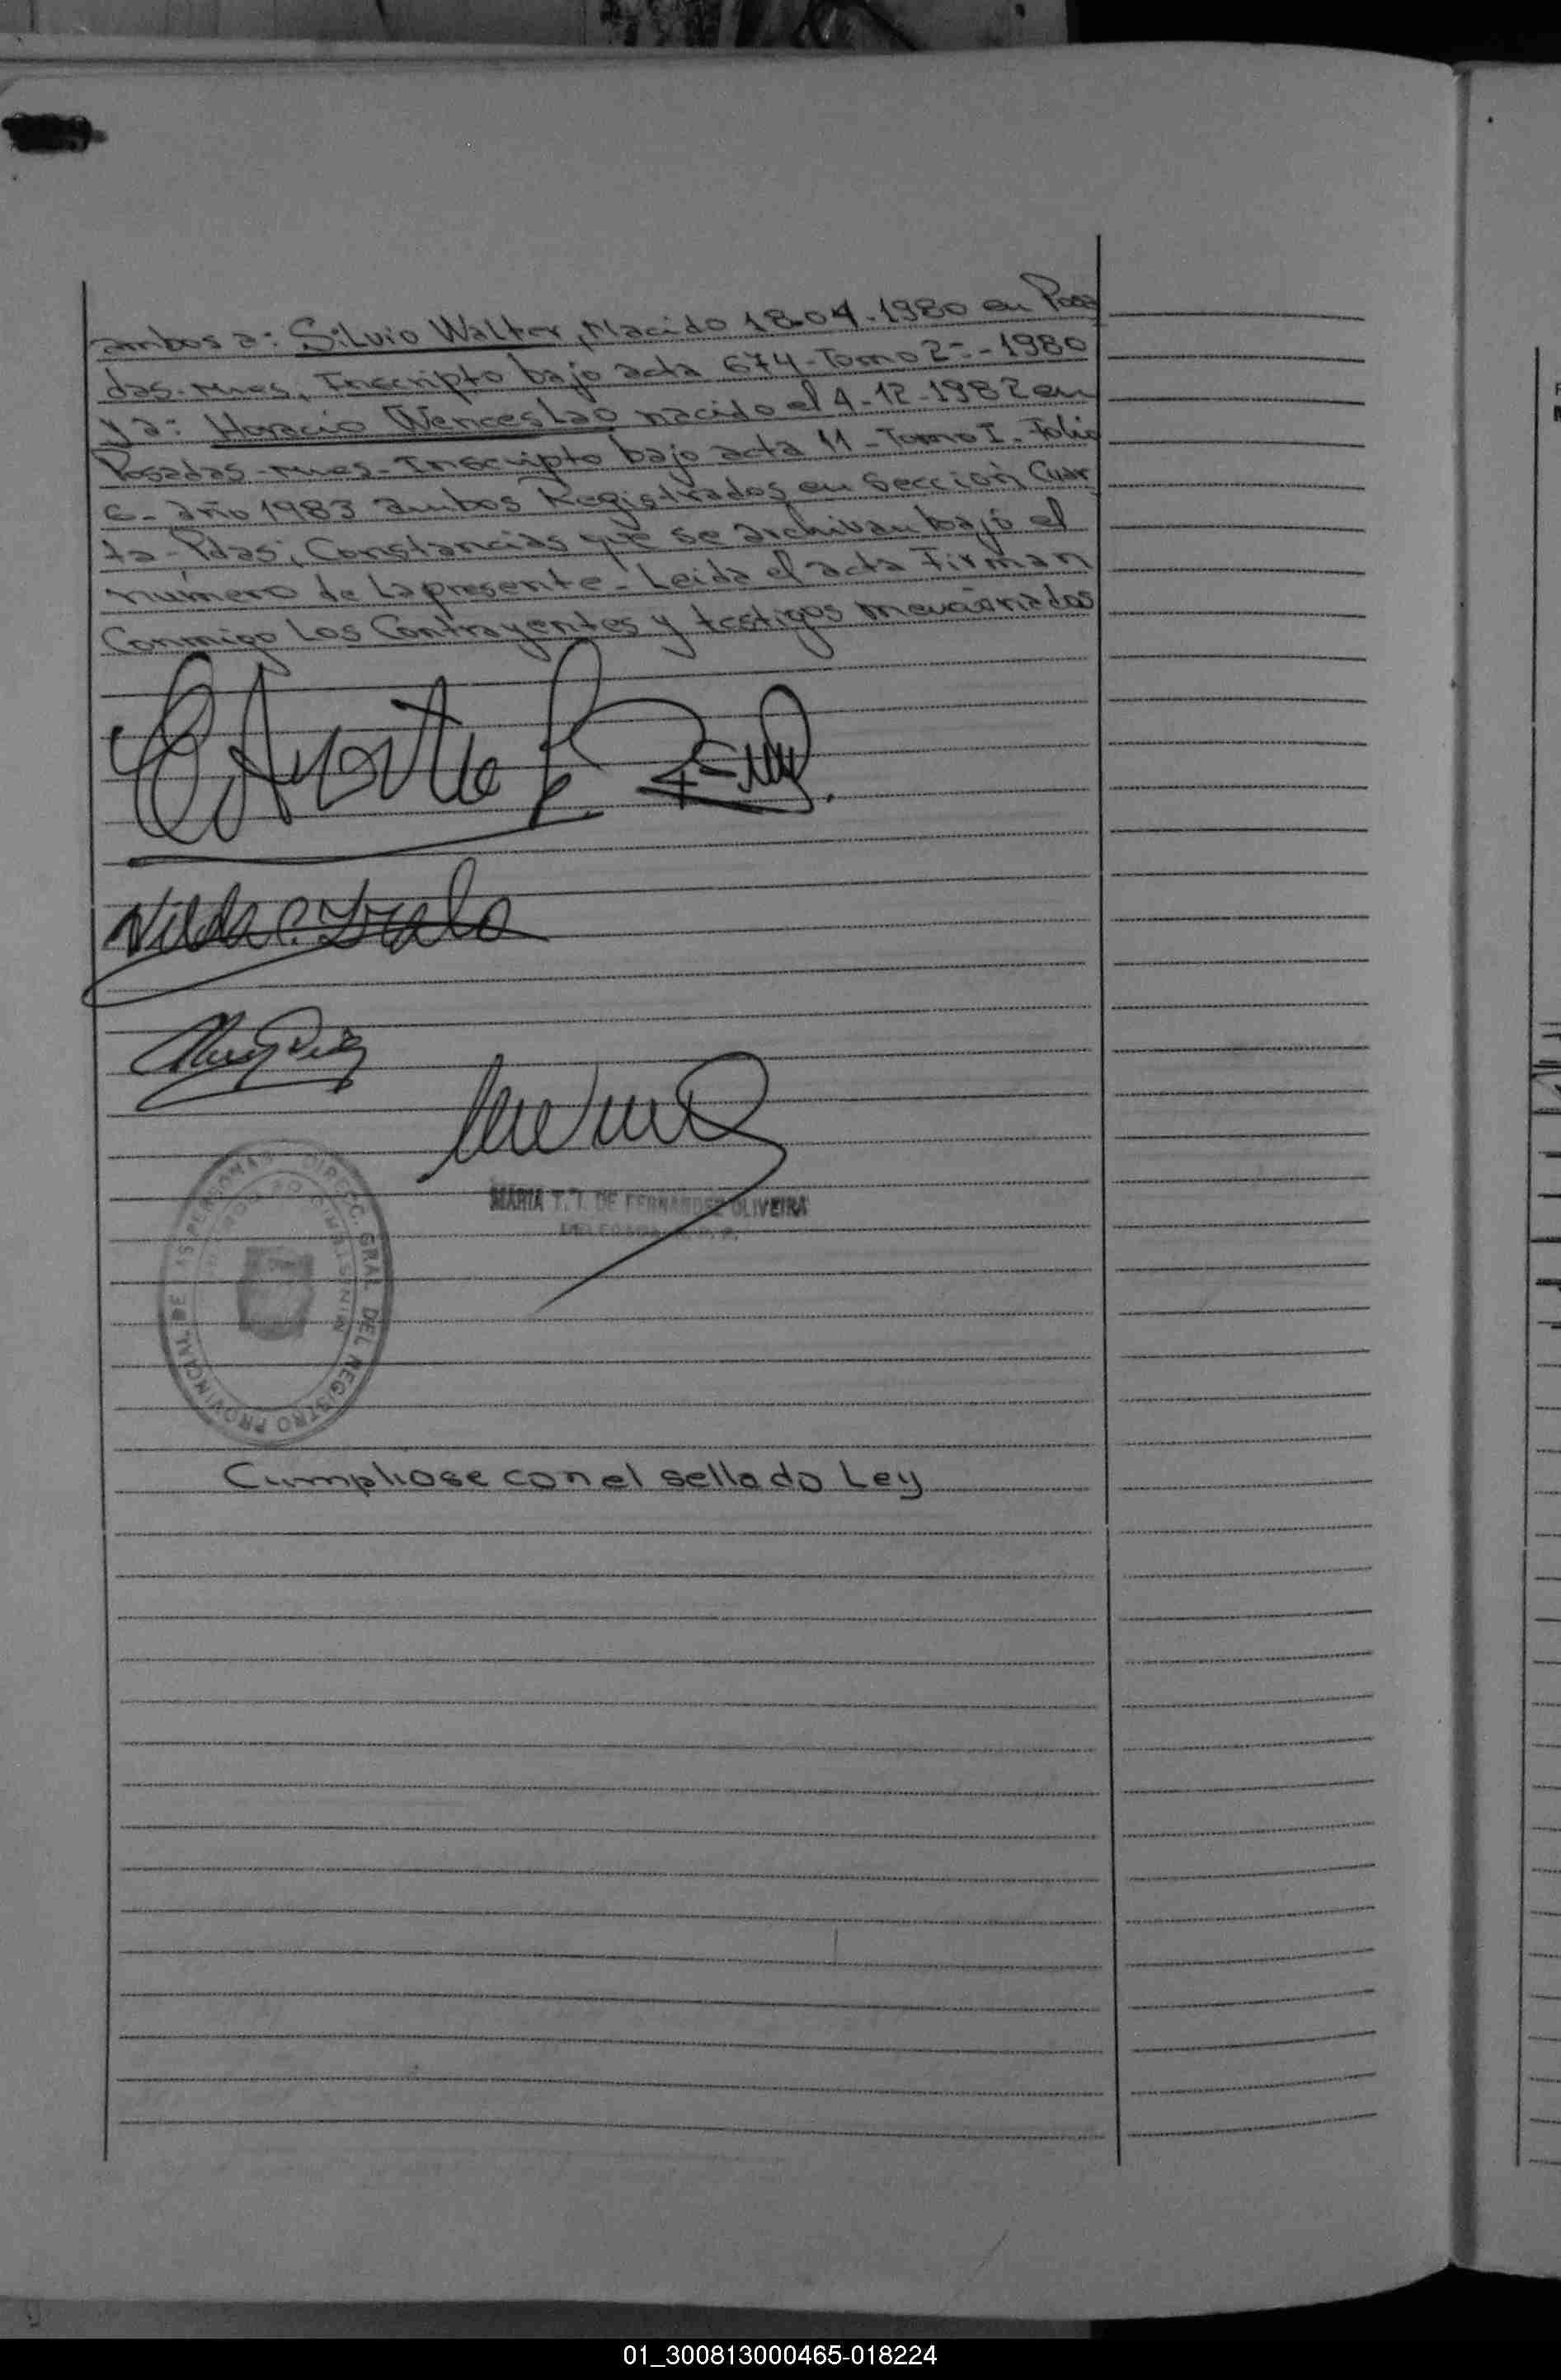 ambos a: Silvio Walter, Nacido 18-04-1980 en Posa
das-Mnes, Inscripto bajo acta 674-Tomo 2º-1980
y a: Horacio Wenceslao nacido el 4-12-1982 en
Posadas-Mnes-Inscripto bajo acta 11-Tomo I. Folio
6- año 1983 ambos Registrados en Sección Cuar
ta-Pdas; Constancias que se archivan bajo el
número de la presente-Leida el acta Firman
Conmigo Los Contrayentes y testigos mencionados
Nilda
MARIA T. T. DE FERNANDEZ OLIVEIRA
DELEGADA R. P. P.
DIRECC. GRAL. DEL REGISTRO PROVINCIAL DE LAS PERSONAS
Cumpliose con el sellado Ley
01_300813000465-018224